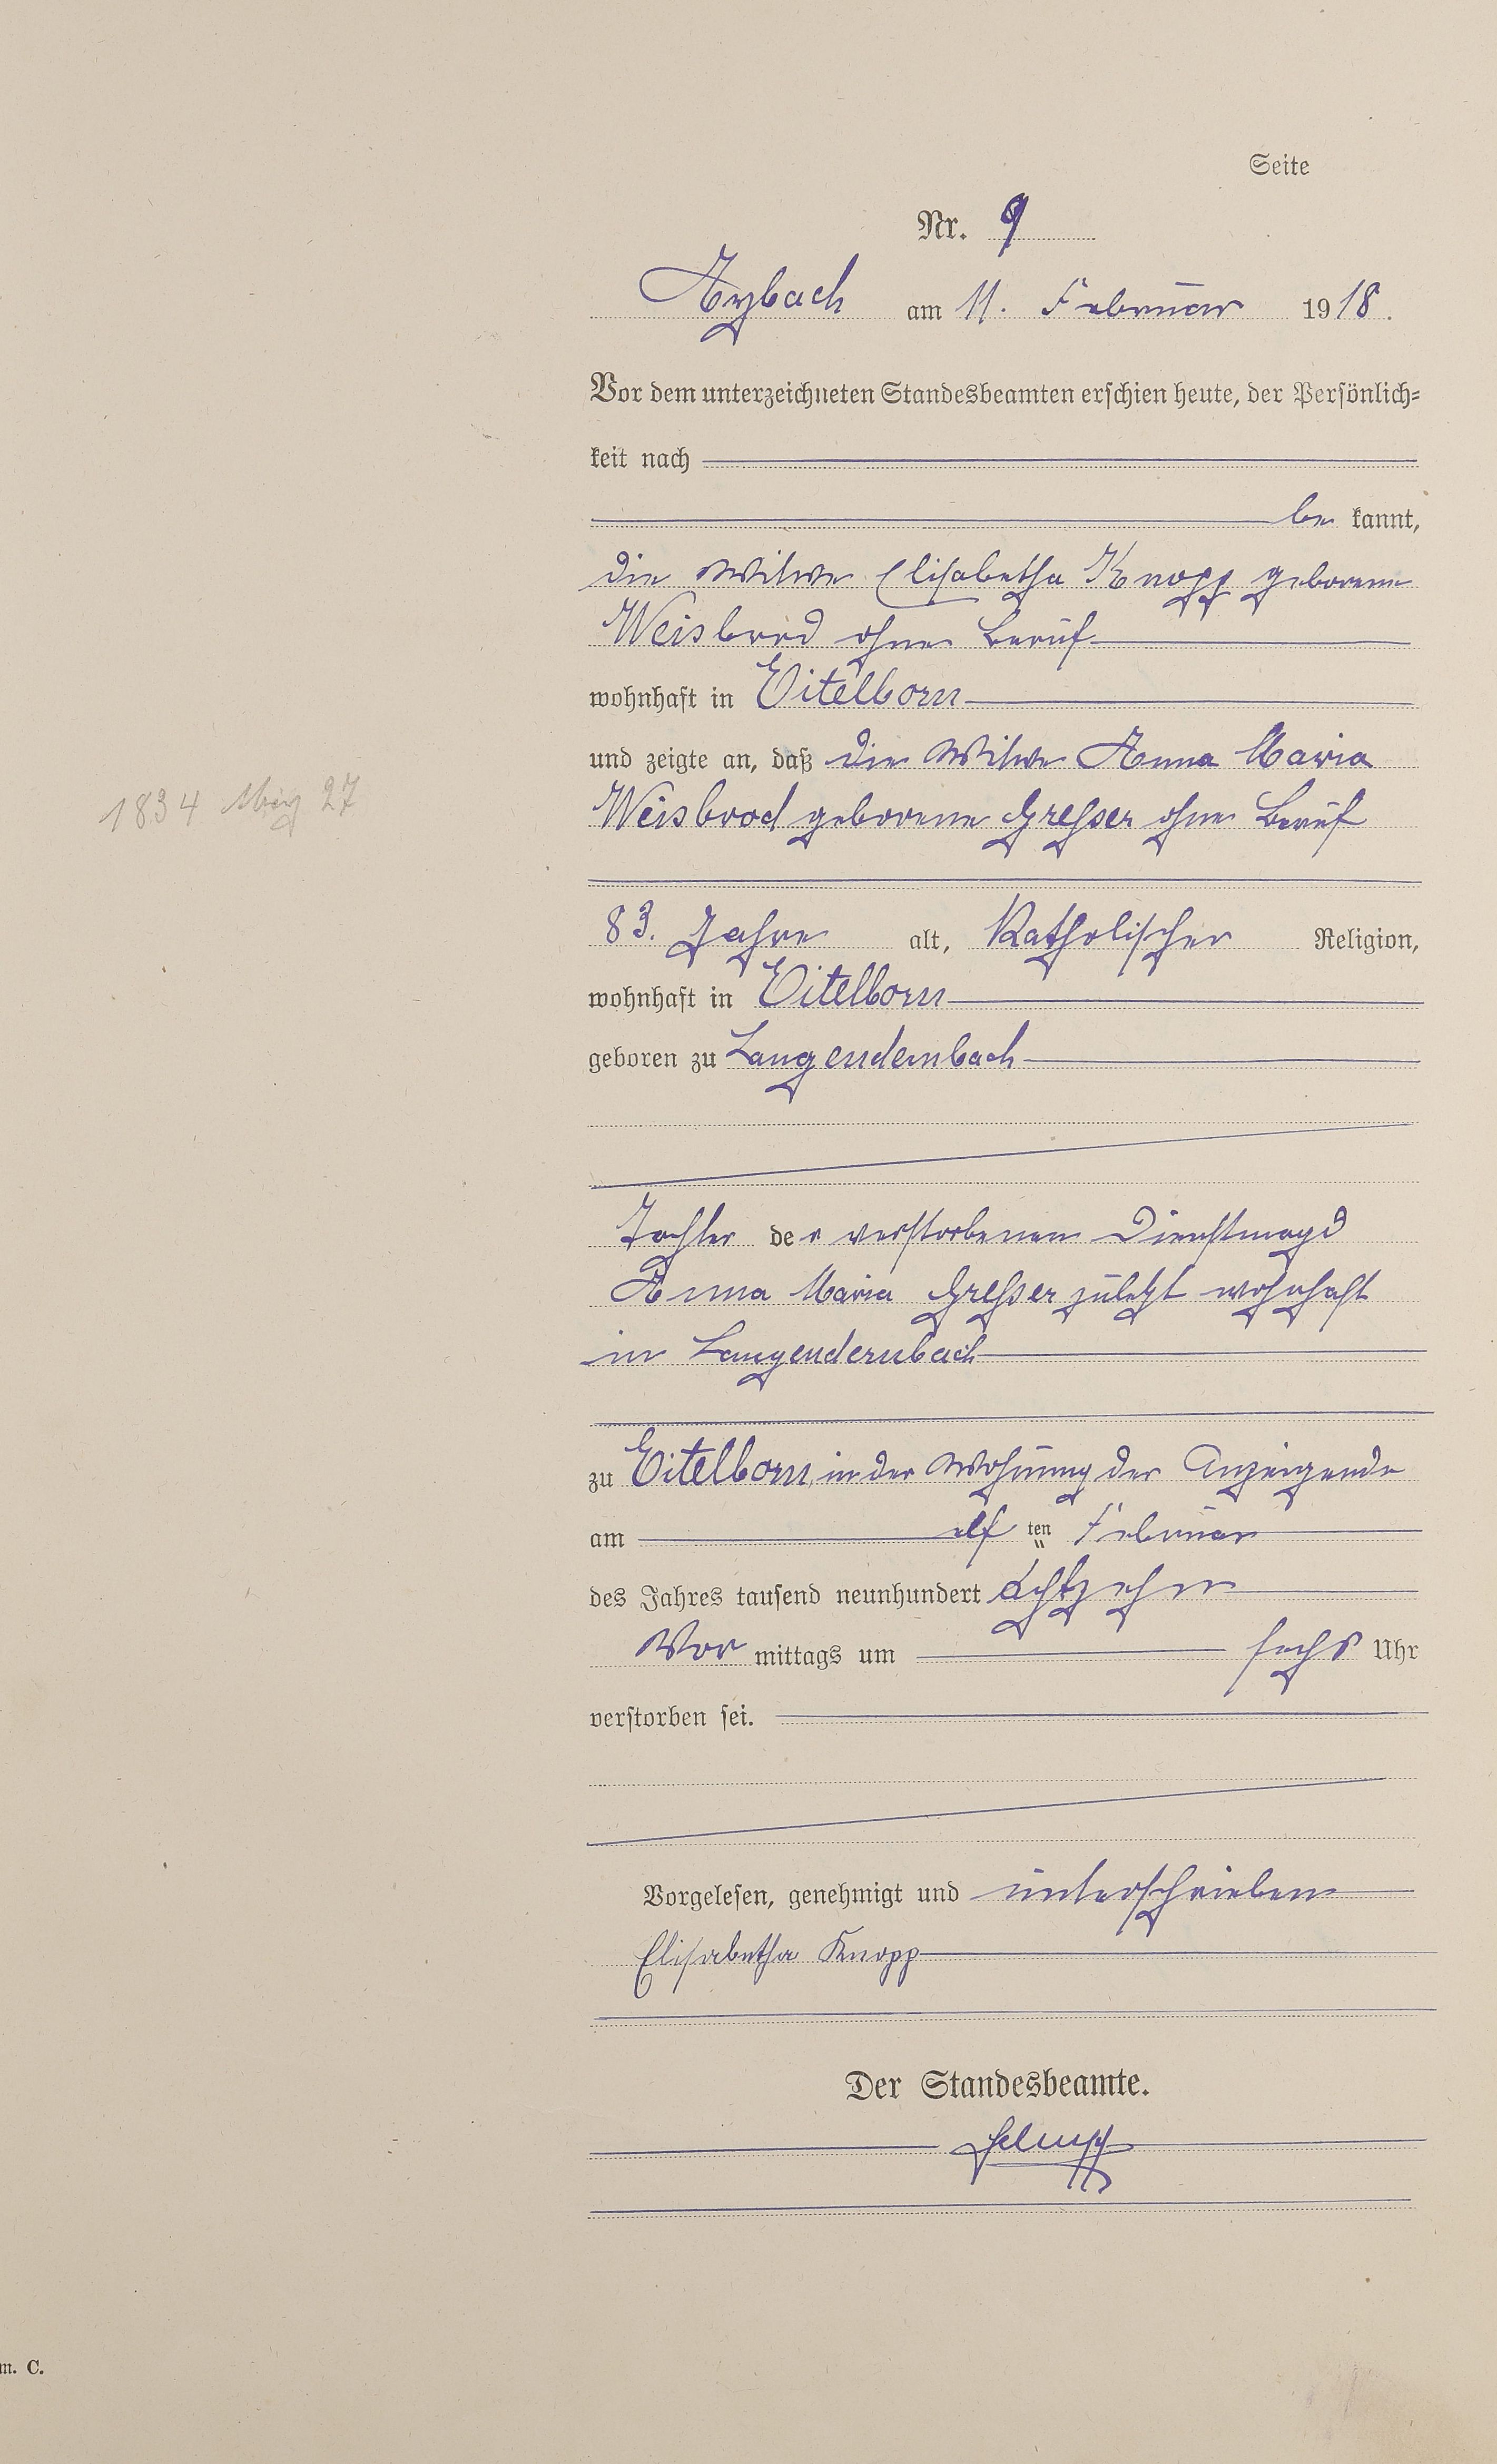 Seite
Nr. 9
Arzbach am 11. Februar 1918.
Vor dem unterzeichneten Standesbeamten erschien heute, der Persönlich-
keit nach
be kannt,
die Witwe Elisabetha Knopp geborene
Weisbrod ohne Beruf
wohnhaft in Eitelborn
und zeigte an, daß die Witwe Anna Maria
1834 27
Weisbrod geborene Gresser ohne Beruf
83. Jahre alt, Katholischer Religion,
wohnhaft in Eitelborn
geboren zu Langendernbach
Tochter der verstorbenen Dienstmagd
Anna Maria Gresser zuletzt wohnhaft
in Langendernbach
zu Eitelborn, in der Wohnung der Anzeigende
am elf ten Februar
des Jahres tausend neunhundert achtzehn
Vor mittags um sechs Uhr
verstorben sei.
Vorgelesen, genehmigt und unterschrieben
Elisabetha Knopp
Der Standesbeamte.
m. C.